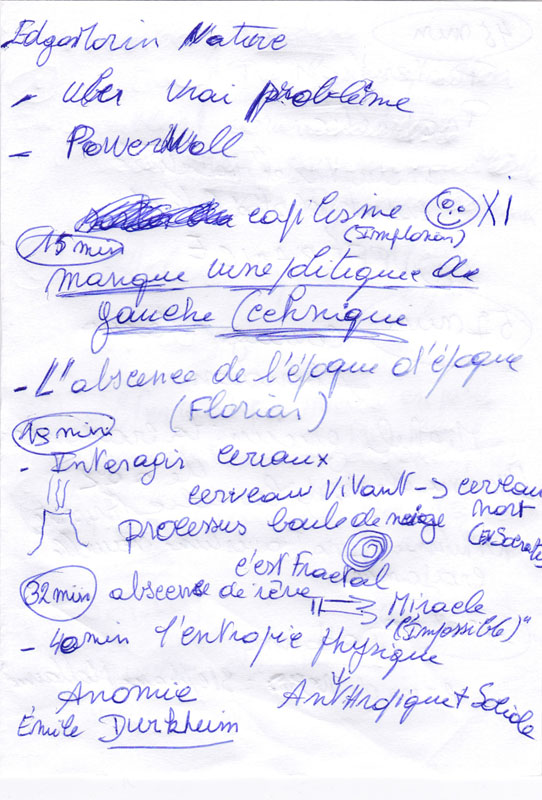 EdgarMorin Nature
- Uber vrai problème
- PowerWall
capilisme XI
(Implosion)
15 min
manque une politique de
gauche technique
- L'abscence de l'époque d'époque
(Florian)
13 min
- Interagir cervaux
cerveau vivant -> cerveau
mort
processus boule de neige (Ex Socrate)
c'est Fractal
32 min abscense de rêve => Miracle
"(l'Impossible)"
- 40min l'entropie physique
Anomie Anthropique + Sociale
Émile Durkheim